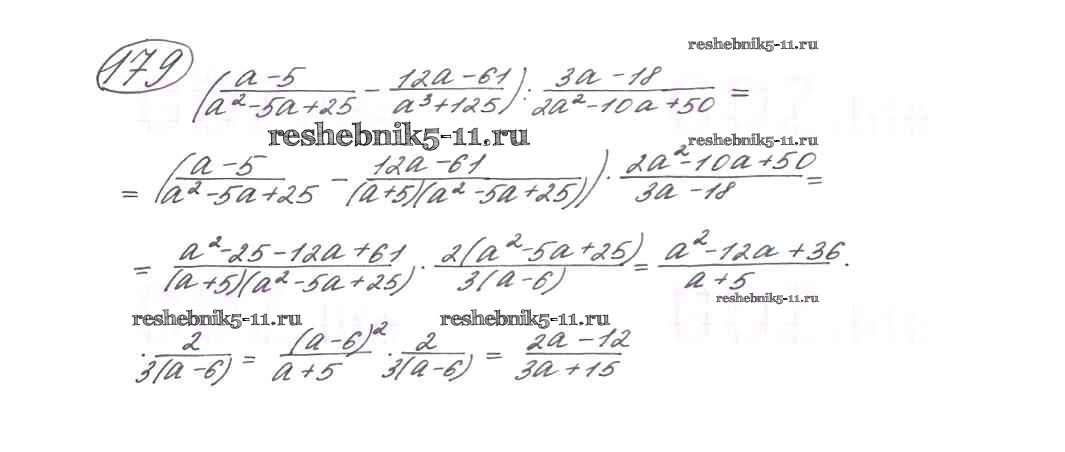 reshebnik5-11.ru
179
(a-5 / a²-5a+25 - 12a-61 / a³+125) : 3a-18 / 2a²-10a+50 =
reshebnik5-11.ru reshebnik5-11.ru
= (a-5 / a²-5a+25 - 12a-61 / (a+5)(a²-5a+25)) · 2a²-10a+50 / 3a-18 =
= a²-25-12a+61 / (a+5)(a²-5a+25) · 2(a²-5a+25) / 3(a-6) = a²-12a+36 / a+5 ·
reshebnik5-11.ru
reshebnik5-11.ru reshebnik5-11.ru
· 2 / 3(a-6) = (a-6)² / a+5 · 2 / 3(a-6) = 2a-12 / 3a+15